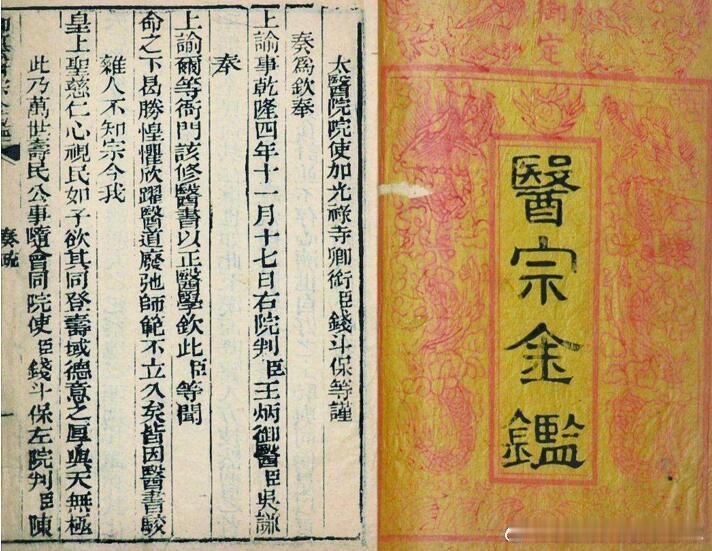 御定
醫宗金鑑
太醫院院使加光祿寺卿銜臣錢斗保等謹
奏為欽奉
上諭事乾隆四年十一月十七日右院判臣王炳御醫臣吳謙
奉
上諭爾等衙門該修醫書以正醫學欽此臣等聞
命之下曷勝惶懼欣躍醫道廢弛師範不立久矣皆因醫書駮
雜人不知宗今我
皇上聖慈仁心視民如子欲其同登壽域德意之厚與天無極
此乃萬世壽民公事隨會同院使臣錢斗保左院判臣陳
奏疏